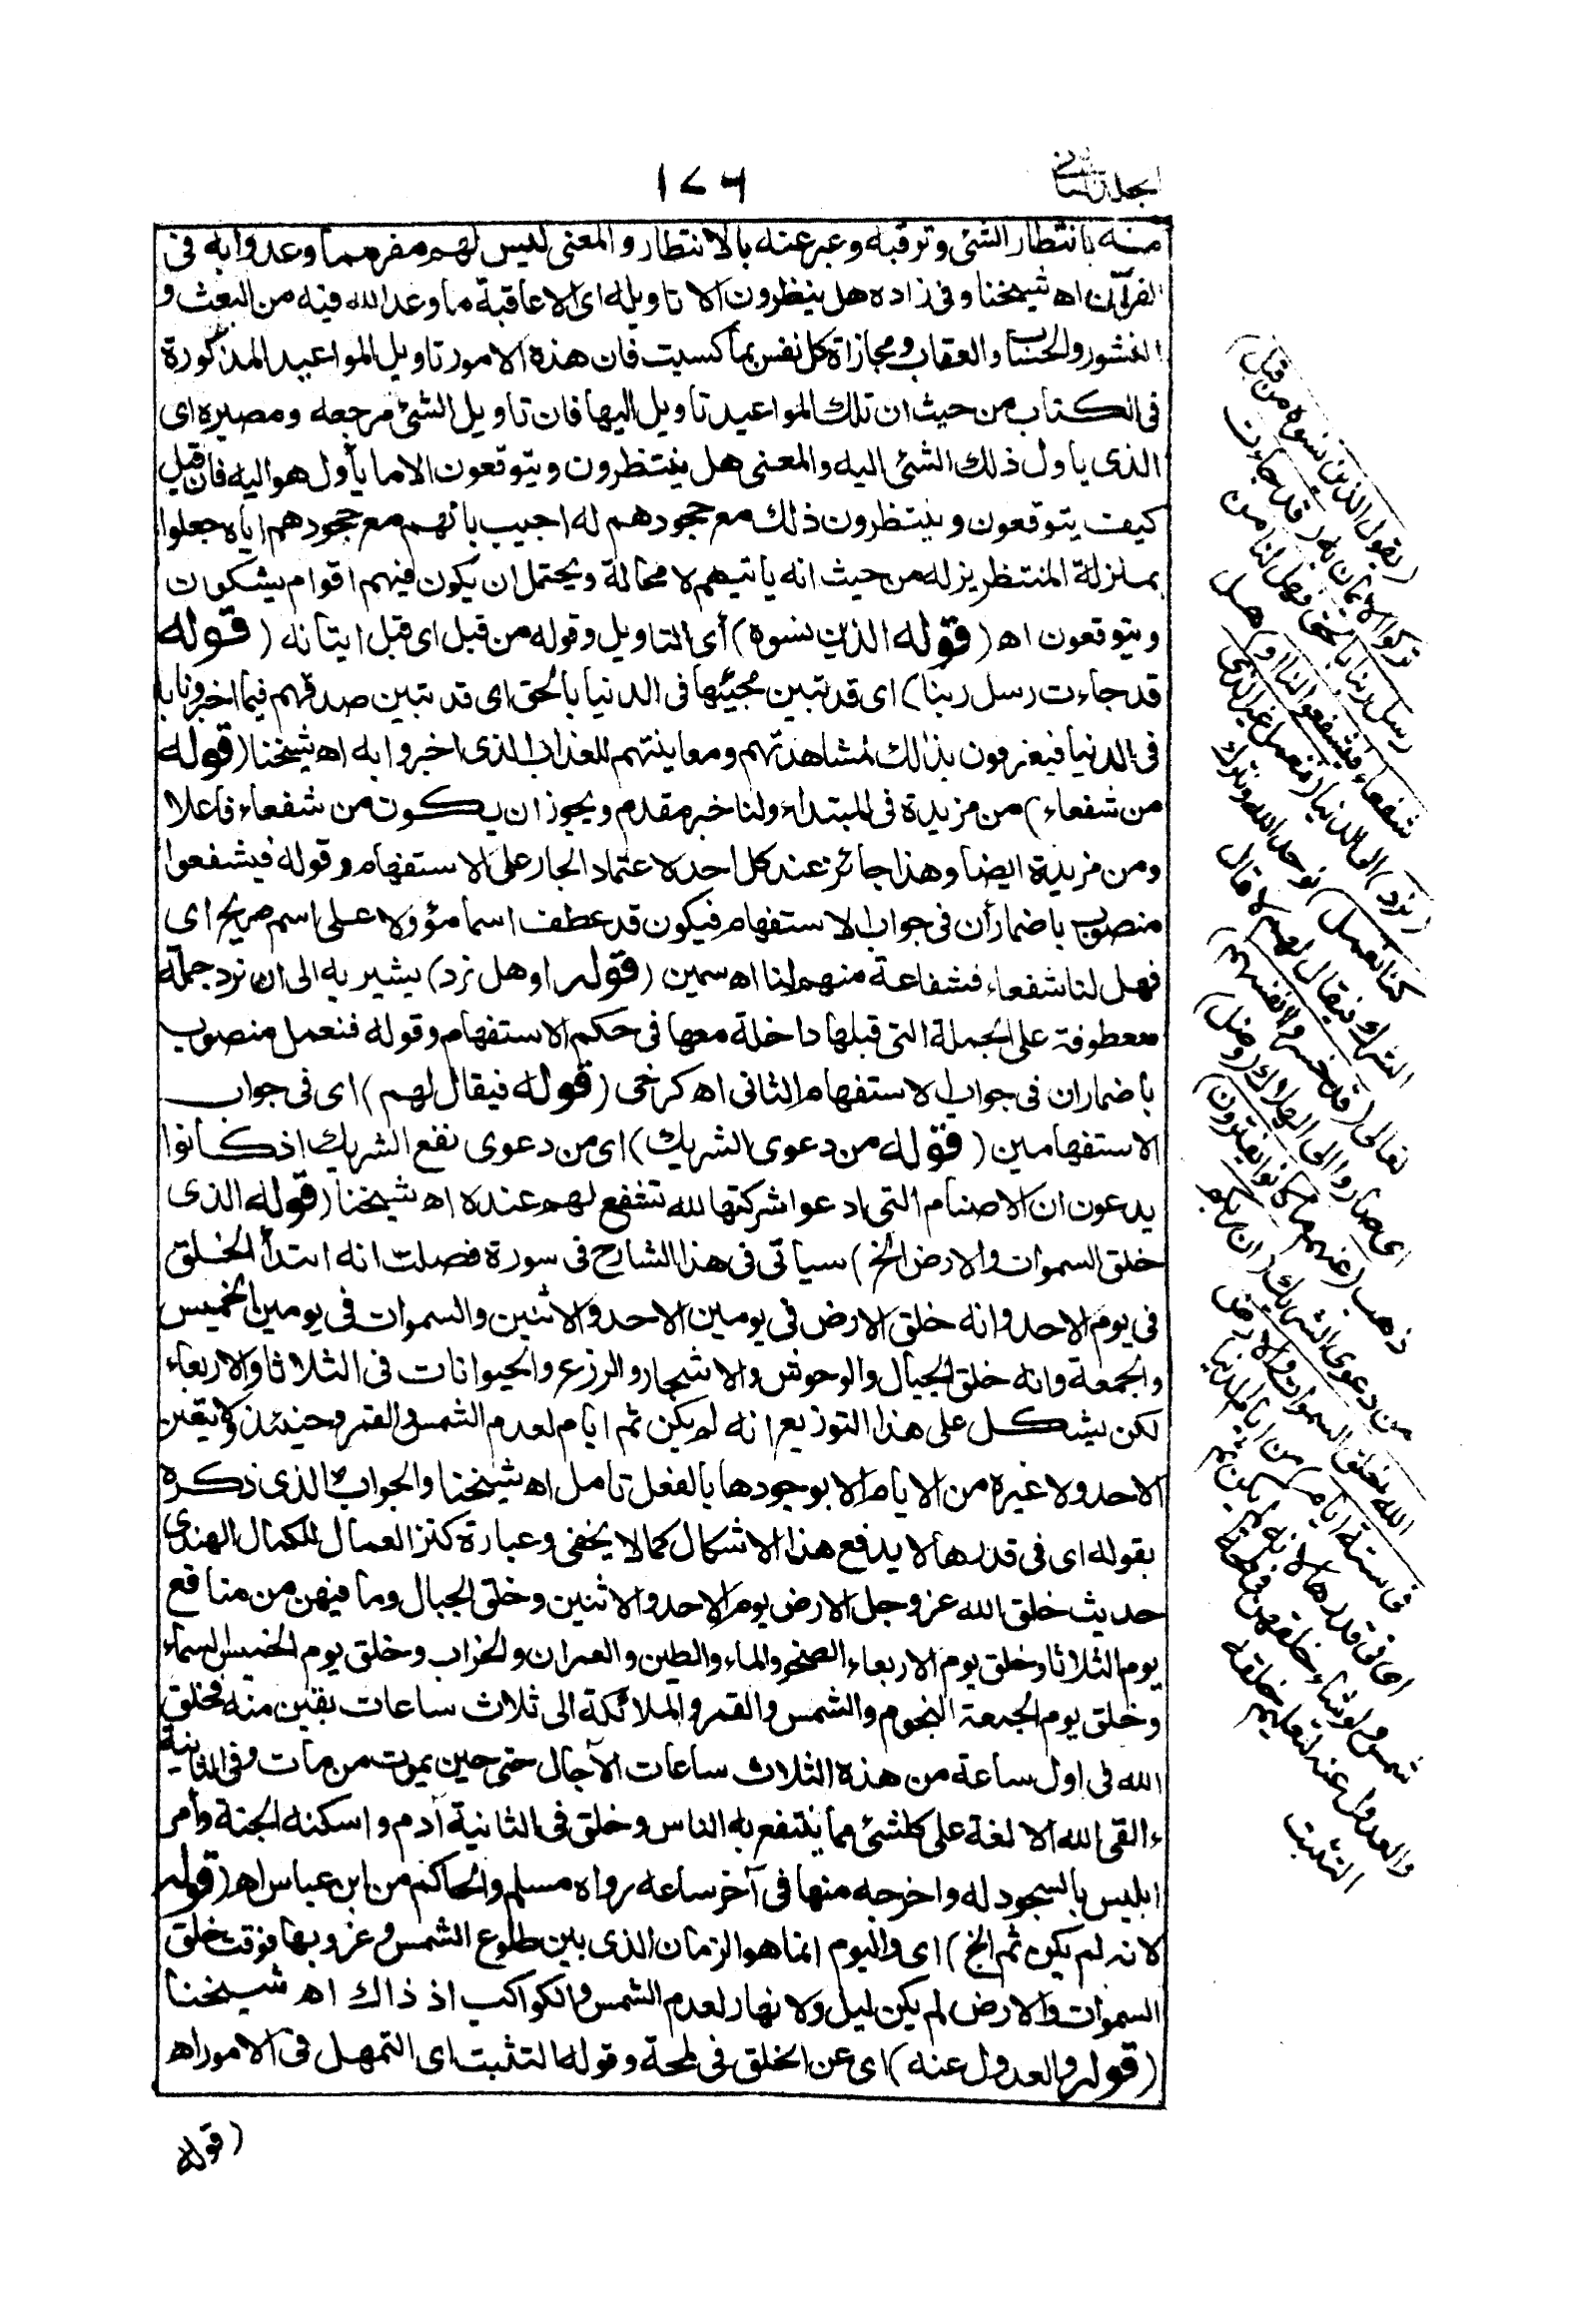 الجلد الثاني
١٧٦
منه بانتظار الشئ وترقبه وعبر عنه بالانتظار والمعنى ليس لهم مفر مما وعدوا به فى
القرآن اه شيخنا وفى زاده هل ينظرون الا تاويله اى الا عاقبة ما وعد الله فيه من البعث و
النشور والحساب والعقاب ومجازاة كل نفس بما كسبت فان هذه الامور تاويل المواعيد المذكورة
فى الكتاب من حيث ان تلك المواعيد تاويل اليها فان تاويل الشئ مرجعه ومصيره اى
الذى ياول ذلك الشئ اليه والمعنى هل ينتظرون ويتوقعون الا ما يأول هو اليه فان قيل
كيف يتوقعون وينتظرون ذلك مع جحودهم له اجيب بانهم مع جحودهم اياه جعلوا
بمنزلة المنتظرين له من حيث انه ياتيهم لا محالة ويحتمل ان يكون فيهم اقوام يشكون
ويتوقعون اه (قوله الذين نسوه) أى التاويل وقوله من قبل اى قبل ايتانه (قوله
قد جاءت رسل ربنا) اى قد تبين مجيئها فى الدنيا بالحق اى قد تبين صدقهم فيما اخبرونا با
فى الدنيا فيعترفون بذالك لمشاهدتهم ومعاينتهم للعذاب الذى اخبروا به اه شيخنا (قوله
من شفعاء) من مزيدة فى المبتداء ولنا خبر مقدم ويجوز ان يكون من شفعاء فاعلا
ومن مزيدة ايضا وهذا جائز عند كل احد لاعتماد الجار على الاستفهام وقوله فيشفعوا
منصوب باضمار أن فى جواب الاستفهام فيكون قد عطف اسما مؤولا على اسم صريح اى
فهل لنا شفعاء فشفاعة منهم لنا اه سمين (قوله او هل نرد) يشير به الى ان نرد جملة
معطوفة على الجملة التى قبلها داخلة معها فى حكم الاستفهام وقوله فنعمل منصوب
باضمار ان فى جواب الاستفهام الثانى اه كرخى (قوله فيقال لهم) اى فى جواب
الاستفهامين (قوله من دعوى الشريك) اى من دعوى نفع الشريك اذ كانوا
يدعون ان الاصنام التى ادعوا شركتها لله تشفع لهم عنده اه شيخنا (قوله الذى
خلق السموات والارض الخ) سياتى فى هذا الشارح فى سورة فصلت انه ابتدأ الخلق
فى يوم الاحد وانه خلق الارض فى يومين الاحد والاثنين والسموات فى يومين الخميس
والجمعة وانه خلق الجبال والوحوش والاشجار والزرع والحيوانات فى الثلاثا والاربعاء
لكن يشكل على هذا التوزيع انه لم يكن ثم ايام لعدم الشمس والقمر وحينئذ لا يتعين
الاحد ولا غيره من الايام الا بوجودها بالفعل تامل اه شيخنا والجواب الذى ذكره
بقوله اى فى قدرها لا يدفع هذا الاشكال كما لا يخفى وعبارة كنز العمال للكمال الهندى
حديث خلق الله عز وجل الارض يوم الاحد والاثنين وخلق الجبال وما فيهن من منافع
يوم الثلاثا وخلق يوم الاربعاء الصخر والماء والطين والعمران والخراب وخلق يوم الخميس السماء
وخلق يوم الجمعة النجوم والشمس والقمر والملائكة الى ثلاث ساعات بقين منه فخلق
الله فى اول ساعة من هذه الثلاث ساعات الآجال حتى حين يموت من مات وفى الثانية
القى الله الالفة على كل شئ مما ينتفع به الناس وخلق فى الثانية آدم واسكنه الجنة وأمر
ابليس بالسجود له واخرجه منها فى آخر ساعه رواه مسلم والحاكم من ابن عباس اه (قوله
لانه لم يكن ثم الخ) اى واليوم انما هو الزمان الذى بين طلوع الشمس وغروبها فوقت خلق
السموات والارض لم يكن ليل ولا نهار لعدم الشمس والكواكب اذ ذاك اه شيخنا
(قوله والعدول عنه) اى عن الخلق فى لمحة وقوله التثبت اى التمهل فى الامور اه
(قوله
(يقول الذين نسوه من قبل)
تركوا الايمان به (قد جاءت
رسل ربنا بالحق فهل لنا من
شفعاء فيشفعوا لنا او) هل
(نرد) الى الدنيا (فنعمل غير الذى
كنا نعمل) نوحد الله ونترك
الشرك فيقال لهم لا قال
تعالى (قد خسروا انفسهم)
اى صاروا الى الهلاك (وضل)
ذهب (عنهم ما كانوا يفترون)
من دعوى الشريك (ان ربكم
الله الذى خلق السموات والارض
فى ستة ايام) من ايام الدنيا
اى فى قدرها لانه لم يكن ثم
شمس ولو شاء خلقهن فى لمحة
والعدول عنه لتعليم خلقه
التثبت